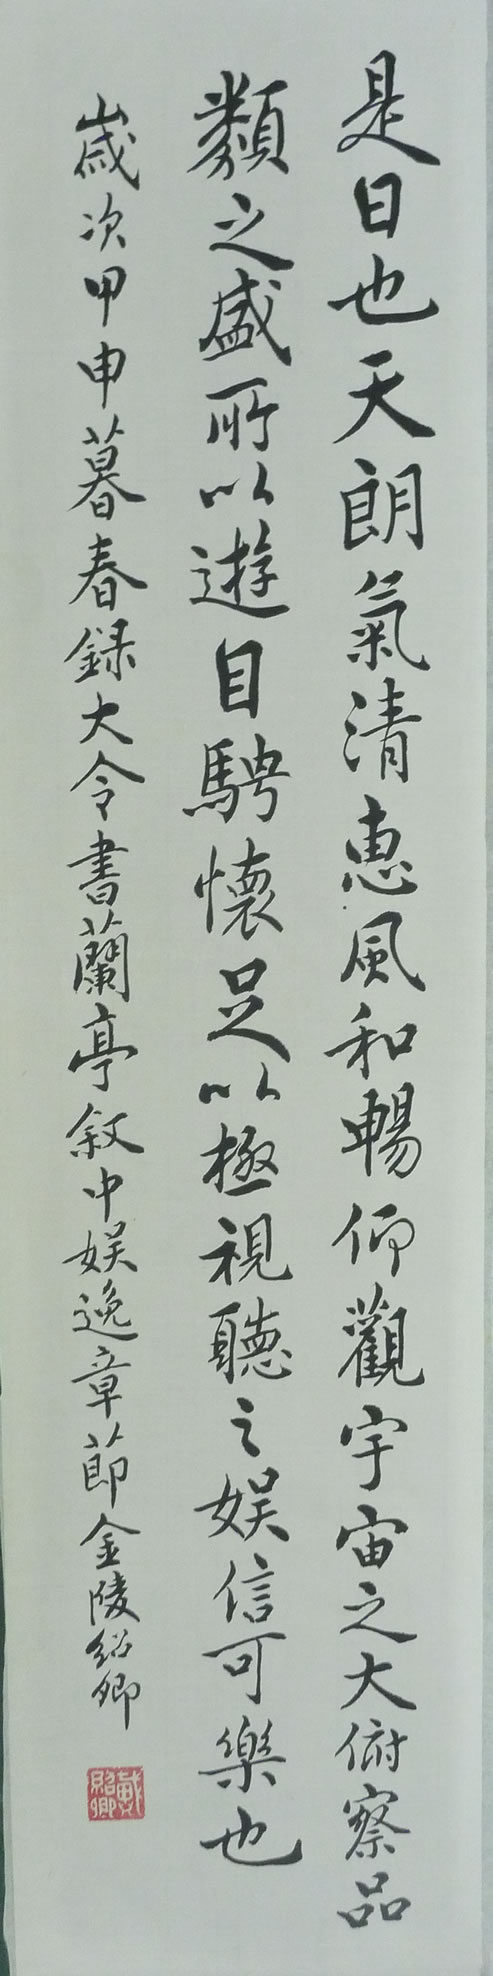 是日也天朗氣清惠風和暢仰觀宇宙之大俯察品
類之盛所以遊目騁懷足以極視聽之娱信可樂也
歲次甲申暮春録大令書蘭亭叙中娱逸章節金陵紹卿
戴紹卿